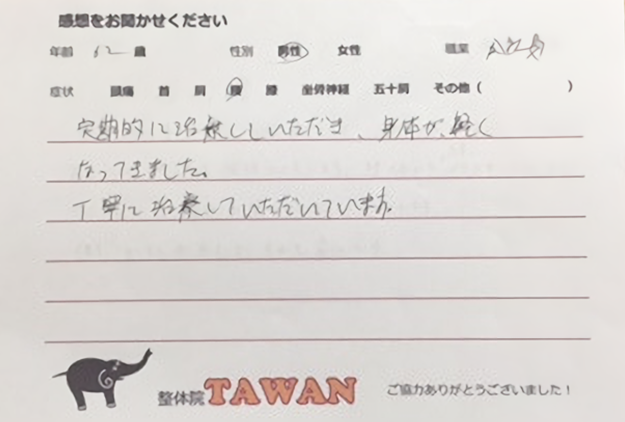 感想をお聞かせください
年齢 62 歳 性別 男性 女性 職業 公務員
症状 頭痛 首 肩 腰 膝 坐骨神経 五十肩 その他( )
定期的に治療していただき、身体が軽く
なってきました。
丁寧に治療していただいています。
整体院 TAWAN ご協力ありがとうございました!